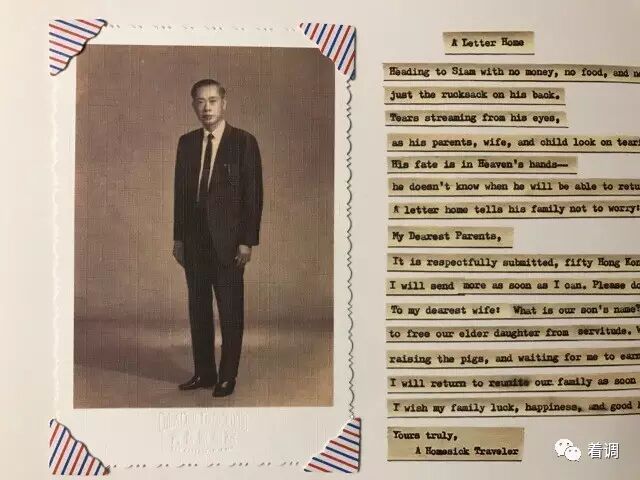 A Letter Home
Heading to Siam with no money, no food, and
just the rucksack on his back.
Tears streaming from his eyes,
as his parents, wife, and child look on
His fate is in Heaven's hands—
he doesn't know when he will be able to
A letter home tells his family not to worry:
My Dearest Parents,
It is respectfully submitted, fifty Hong
I will send more as soon as I can. Please
To my dearest wife: What is our son's name?
to free our elder daughter from servitude.
raising the pigs, and waiting for me to
I will return to reunite our family as soon
I wish my family luck, happiness, and good
Yours truly,
A Homesick Traveler
着调